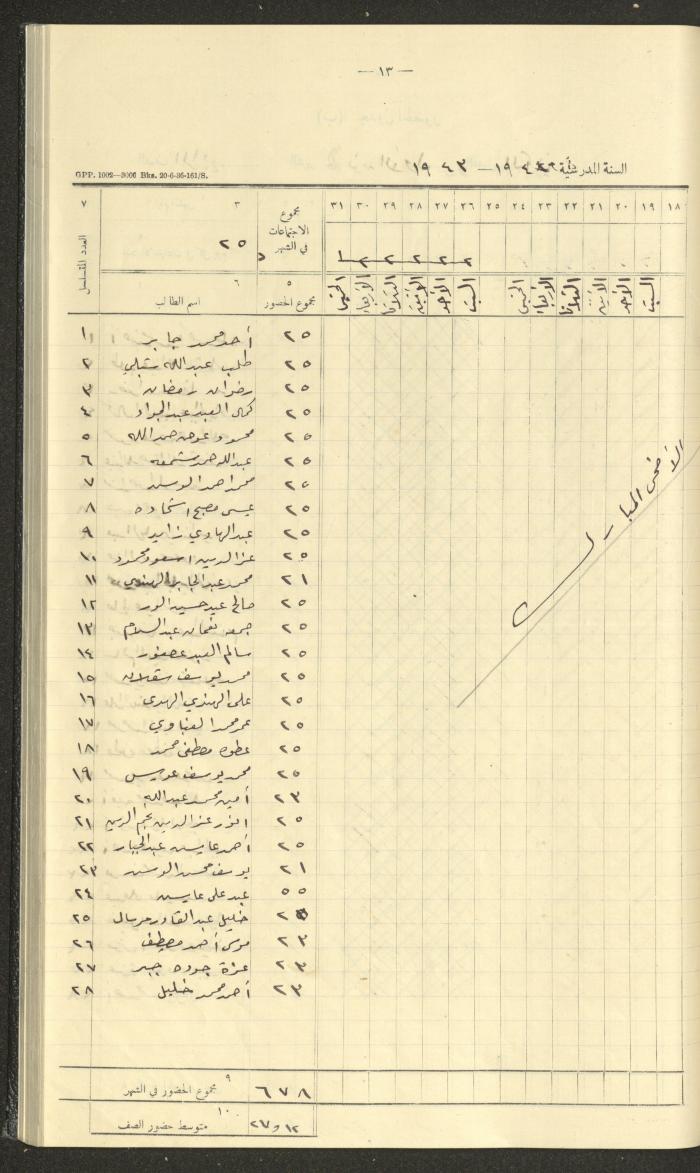 — ١٣ —
السنة المدرسية ١٩٤٢ – ١٩٤٣
GPP. 1002—3000 Bks. 20-6-36-161/S.
١٨ ١٩ ٢٠ ٢١ ٢٢ ٢٣ ٢٤ ٢٥ ٢٦ ٢٧ ٢٨ ٢٩ ٣٠ ٣١ مجموع الاجتماعات في الشهر ٣ ٧
٢ ٢ ٢ ٢ ٢ ١ ٢٥ العدد المتسلسل
السبت الأحد الاثنين الثلاثا الأربعا الخميس السبت الأحد الاثنين الثلاثا الأربعا الخميس
٥ مجموع الحضور ٦ اسم الطالب
الأضحى المبارك
٢٥ أحمد محمد جابر ١
٢٥ طلب عبدالله شبلي ٢
٢٥ رضوان رمضان ٣
٢٥ كمال العبد عبدالجواد ٤
٢٥ محمود عوض حمدالله ٥
٢٥ عبدالله حمد ٦
٢٥ محمد احمد ٧
٢٥ عيسى مصبح اشحاده ٨
٢٥ عبدالهادي زايد ٩
٢٥ عزالدين اسعود محمود ١٠
٢١ محمد عبدالجابر الهندي ١١
٢٥ صالح عيد حسين ١٢
٢٥ جمعه نعمان عبدالسلام ١٣
٢٥ سالم العبد عصفور ١٤
٢٥ محمد يوسف ١٥
٢٥ على الهندي ١٦
٢٥ عمر محمد العناوي ١٧
٢٥ عطوه مصطفى محمد ١٨
٢٥ محمد يوسف عويس ١٩
٢٣ أمين محمد عبدالله ٢٠
٢٥ انور عزالدين نجم الدين ٢١
٢٥ أحمد عايش عبدالجبار ٢٢
٢١ يوسف محسن ٢٣
٥٥ عبد على عايش ٢٤
خليل عبدالقادر مرسال ٢٥
٢٣ موسى أحمد مصيطف ٢٦
٢٣ عزة جوده جبر ٢٧
٢٣ أحمد محمد خليل ٢٨
٩ مجموع الحضور في الشهر ٦٧٨
١٠ متوسط حضور الصف ١٢ و ٢٧